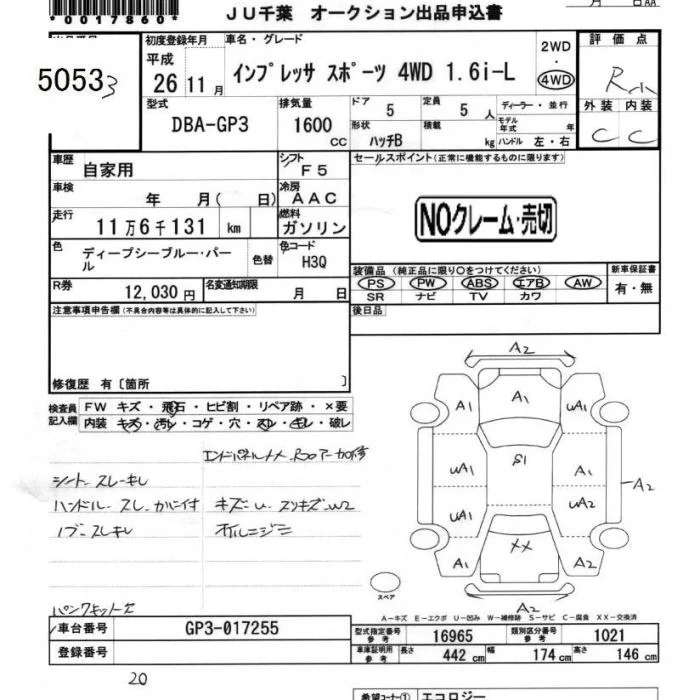 *0017860*
JU千葉 オークション出品申込書
月 日AA
50533
初度登録年月
平成
26 11 月
車名・グレード
インプレッサ スポーツ 4WD 1.6i-L
2WD
・
4WD
評価点
R
外装 内装
C C
型式
DBA-GP3
排気量
1600
CC
ドア
5
定員
5 人
ディーラー・並行
モデル年式 年
形状
ハッチB
積載
kg
ハンドル 左・右
車歴
自家用
シフト
F5
セールスポイント(正常に機能するものに限ります)
車検
年 月( 日)
冷房
AAC
走行
11万6千131 km
燃料
ガソリン
NOクレーム・売切
色
ディープシーブルー・パール
色替
色コード
H3Q
装備品(純正品に限り○をつけてください)
PS PW ABS エアB AW
SR ナビ TV カワ
新車保証書
有・無
R券
12,030 円
名変通知期限
月 日
後日品
注意事項申告欄(不具合内容等は具体的に記入して下さい)
修復歴 有〔箇所 〕
検査員記入欄
FW キズ・飛石・ヒビ割・リペア跡・×要
内装 キズ・汚レ・コゲ・穴・スレ・キレ・破レ
エンドパネルXX
シート スレ キレ
ハンドル スレ
キズ・U スリキズ・W2
ノブ スレキレ
オイルニジミ
パンクキット
A2
A1 A1 UA1
UA1 S1 A1
A2
UA1 UA2
A1 XX A2
A2
スペア
A-キズ E-エクボ U-凹み W-補修跡 S-サビ C-腐食 XX-交換済
車台番号
GP3-017255
型式指定番号
参考
16965
類別区分番号
参考
1021
登録番号
車庫証明用
参考
長さ
442 cm
幅
174 cm
高さ
146 cm
20
希望コーナー①
エコロジー